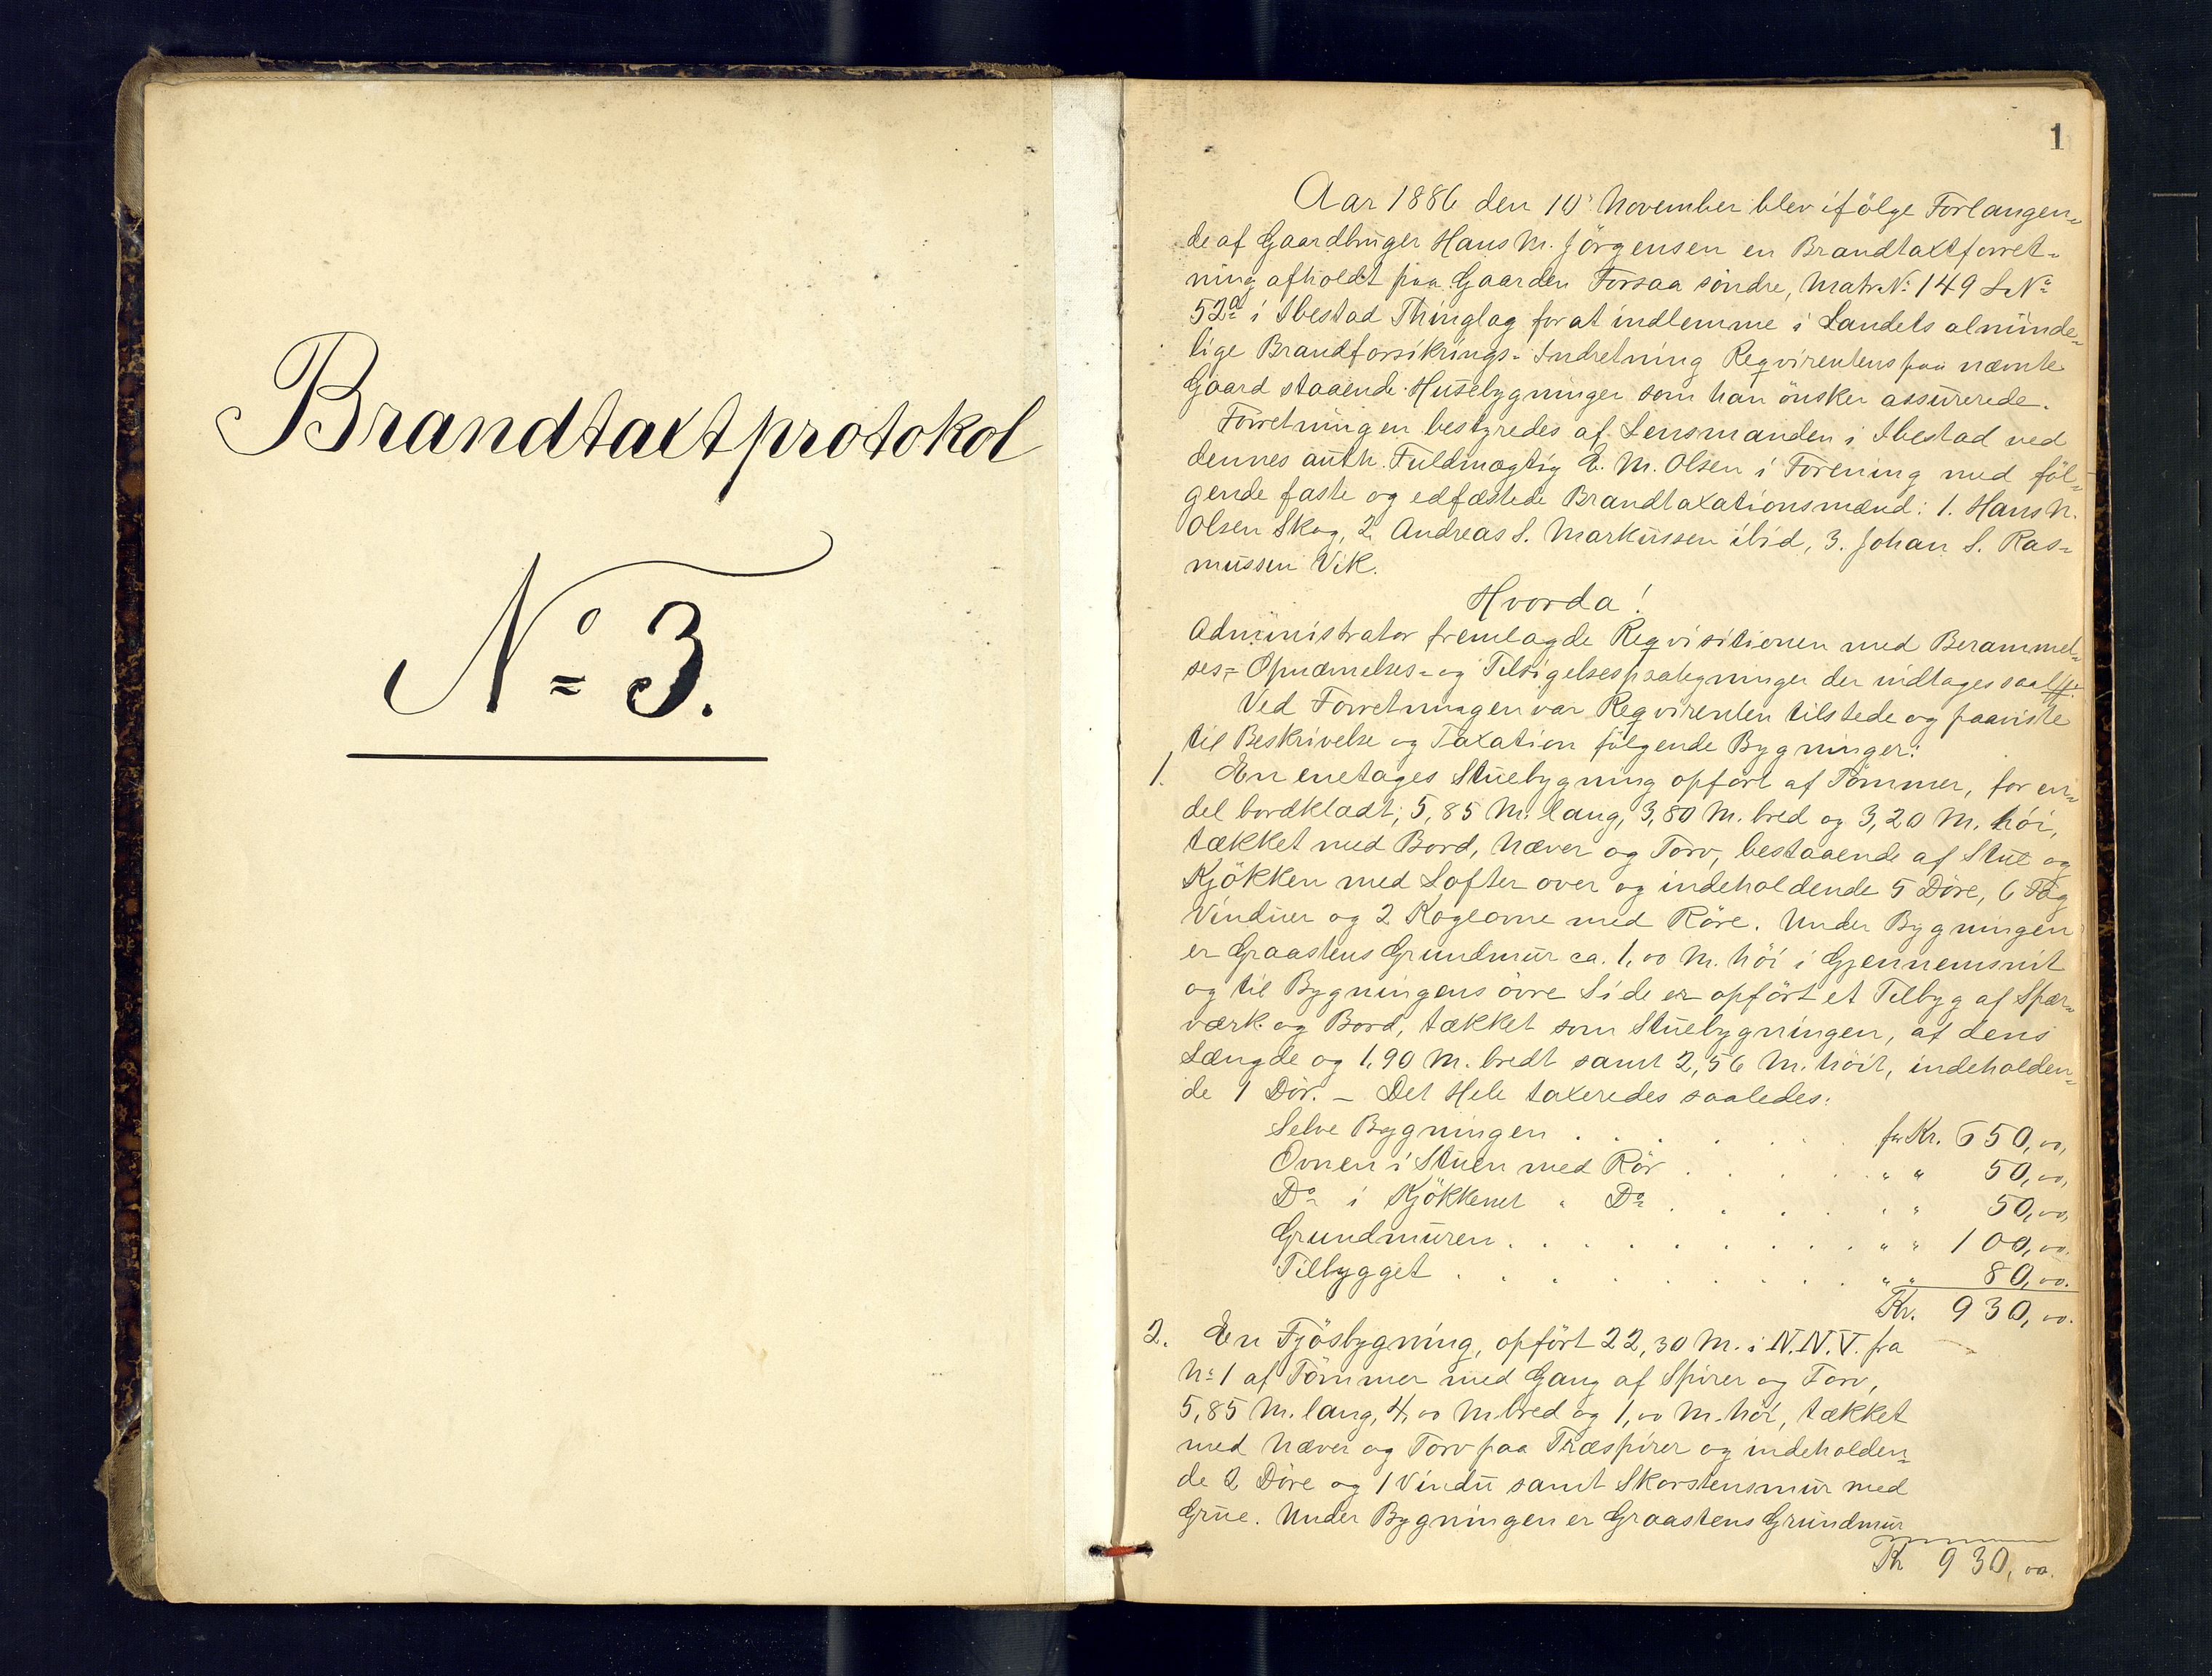 Brandtaxtprotokol
No 3.
1
Aar 1886 den 10' November blev ifölge Forlangen=
de af Gaardbruger Hans M. Jörgensen en Brandtaxtforret=
ning afholdt paa Gaarden Forsaa söndre, Matr.No 149 L.No
52a i Ibestad Thinglag for at indlemme i Landets alminde=
lige Brandforsikrings-Indretning Reqvirentens paa nævnte
Gaard staaende Husebygninger som han önsker assurerede.
Forretningen bestyredes af Lensmanden i Ibestad ved
dennes auth. Fuldmægtig E. M. Olsen i Forening med föl=
gende faste og edfæstede Brandtaxationsmænd: 1. Hans N.
Olsen Skog, 2. Andreas S. Markussen ibid, 3. Johan S. Ras=
mussen Vik.
Hvorda!
Administrator fremlagde Reqvisitionen med Berammel=
ses= Opnævnelses= og Tilsigelsespaategninger der indtages saal.
Ved Forretningen var Reqvirenten tilstede og paaviste
til Beskrivelse og Taxation fölgende Bygninger:
1. En enetages Stuebygning opfört af Tömmer, for en=
del bordklædt, 5,85 M. lang, 3,80 M. bred og 3,20 M. höi,
tækket med Bord, Næver og Torv, bestaaende af Stue og
Kjökken med Lofter over og indeholdende 5 Döre, 6 Fag
Vinduer og 2 Kogeovne med Röre. Under Bygningen
er Graastens Grundmur ca. 1,00 M. höi i Gjennemsnit
og til Bygningens övre Side er opfört et Tilbyg af Spær=
værk og Bord, tækket som Stuebygningen, af dens
Længde og 1,90 M. bredt samt 2,56 M. höit, indeholden=
de 1 Dör. - Det Hele taxeredes saaledes:
Selve Bygningen . . . . . for Kr. 650,00,
Ovnen i Stuen med Rör . . . . . " " 50,00,
Do i Kjökkenet " Do . . . . . " " 50,00,
Grundmuren . . . . . . . . . " " 100,00.
Tilbygget . . . . . . . . . " " 80,00.
Kr. 930,00.
2. En Fjösbygning, opfört 22,30 M. i N.N.V. fra
No 1 af Tömmer med Gang af Spirer og Torv,
5,85 M. lang, 4,00 M bred og 1,00 M. höi, tækket
med Næver og Torv paa Træspirer og indeholden=
de 2 Döre og 1 Vindu samt Skorstensmur med
Grue. Under Bygningen er Graastens Grundmur
Kr 930,00.